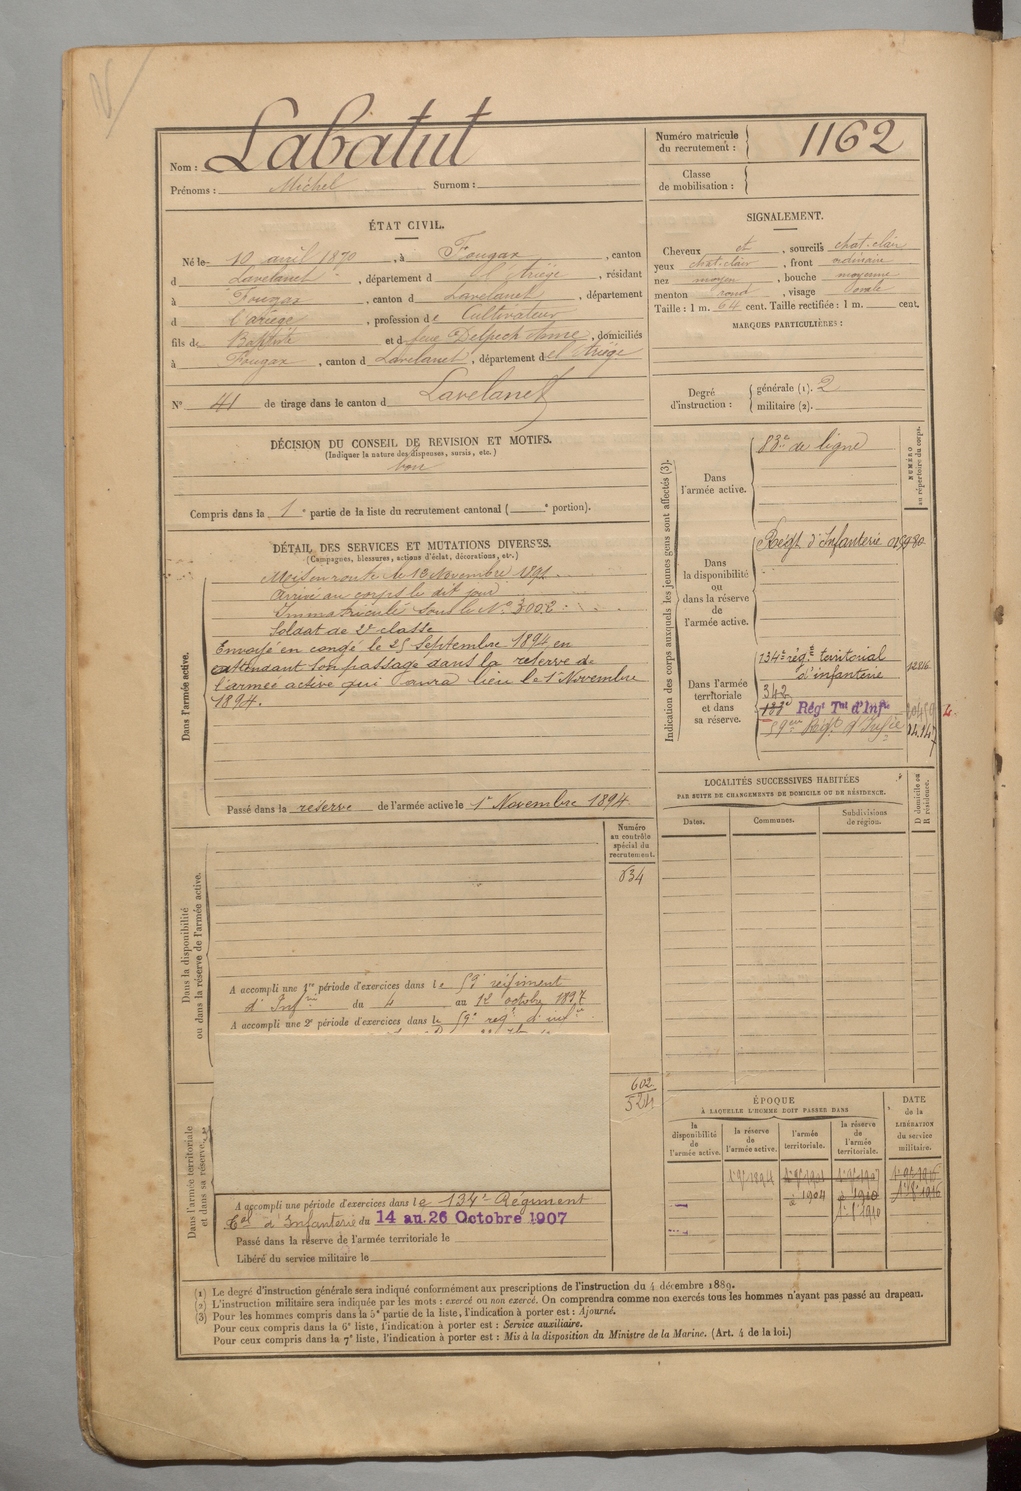 Nom : Labatut
Prénoms : Michel Surnom :
Numéro matricule du recrutement : 1162
Classe de mobilisation :
ÉTAT CIVIL.
Né le 10 avril 1870, à Fougax, canton
d Lavelanet, département d el Ariège, résidant
à Fougax, canton d Lavelanet, département
d l'ariège, profession de Cultivateur
fils de Baptiste et d feue Delpech Anne, domiciliés
à Fougax, canton d Lavelanet, département d el Ariège
N° 41 de tirage dans le canton d Lavelanet
SIGNALEMENT.
Cheveux et, sourcils chat-clair
yeux chat-clair, front ordinaire
nez moyen, bouche moyenne
menton rond, visage ovale
Taille : 1 m. 64 cent. Taille rectifiée : 1 m. cent.
MARQUES PARTICULIÈRES :
Degré d'instruction : générale (1). 2
militaire (2).
DÉCISION DU CONSEIL DE REVISION ET MOTIFS.
(Indiquer la nature des dispenses, sursis, etc.)
bon
Compris dans la 1e partie de la liste du recrutement cantonal ( e portion).
DÉTAIL DES SERVICES ET MUTATIONS DIVERSES.
(Campagnes, blessures, actions d'éclat, décorations, etc.)
Dans l'armée active.
Mis en route le 13 Novembre 1891
Arrivé au corps le dit jour
Immatriculé sous le N° 3002
Soldat de 2e classe
Envoyé en congé le 25 Septembre 1894 en
attendant son passage dans la reserve de
l'armée active qui aura lieu le 1er Novembre
1894.
Passé dans la reserve de l'armée active le 1er Novembre 1894
Indication des corps auxquels les jeunes gens sont affectés (3).
NUMÉRO au répertoire du corps.
Dans l'armée active.
83e de ligne
Dans la disponibilité ou dans la réserve de l'armée active.
Régt d'Infanterie
Dans l'armée territoriale et dans sa réserve.
134e régt territorial
d'infanterie
12816
342
Régt Tal d'Infie
59eme Régt d'Infie
LOCALITÉS SUCCESSIVES HABITÉES
PAR SUITE DE CHANGEMENTS DE DOMICILE OU DE RÉSIDENCE.
Dates. Communes. Subdivisions de région. D domicile ou R résidence.
Dans la disponibilité ou dans la réserve de l'armée active.
Numéro au contrôle spécial du recrutement.
834
A accompli une 1re période d'exercices dans le 59e régiment
d'Infrie du 4 au 1er octobre 1897
A accompli une 2e période d'exercices dans le 59e regt d'infie
602
524
Dans l'armée territoriale et dans sa réserve.
A accompli une période d'exercices dans le 134e Régiment
Tal d'Infanterie du 14 au 26 Octobre 1907
Passé dans la réserve de l'armée territoriale le
Libéré du service militaire le
ÉPOQUE
À LAQUELLE L'HOMME DOIT PASSER DANS
la disponibilité de l'armée active.
la réserve de l'armée active.
l'armée territoriale.
la réserve de l'armée territoriale.
DATE de la LIBÉRATION du service militaire.
1904
1910
(1) Le degré d'instruction générale sera indiqué conformément aux prescriptions de l'instruction du 4 décembre 1889.
(2) L'instruction militaire sera indiquée par les mots : exercé ou non exercé. On comprendra comme non exercés tous les hommes n'ayant pas passé au drapeau.
(3) Pour les hommes compris dans la 5e partie de la liste, l'indication à porter est : Ajourné.
Pour ceux compris dans la 6e liste, l'indication à porter est : Service auxiliaire.
Pour ceux compris dans la 7e liste, l'indication à porter est : Mis à la disposition du Ministre de la Marine. (Art. 4 de la loi.)